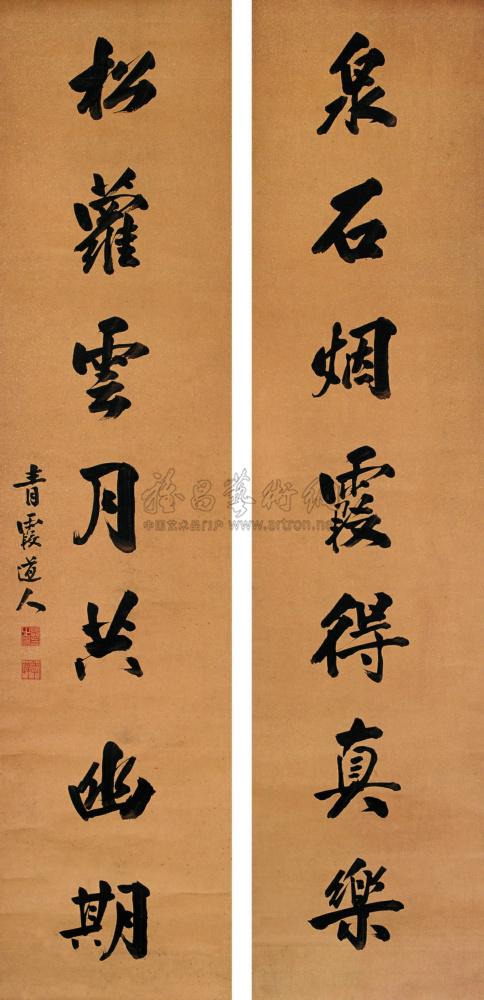 泉石烟霞得真樂
松蘿雲月共幽期
青霞道人
雅昌藝術網
中国艺术品门户 www.artron.net